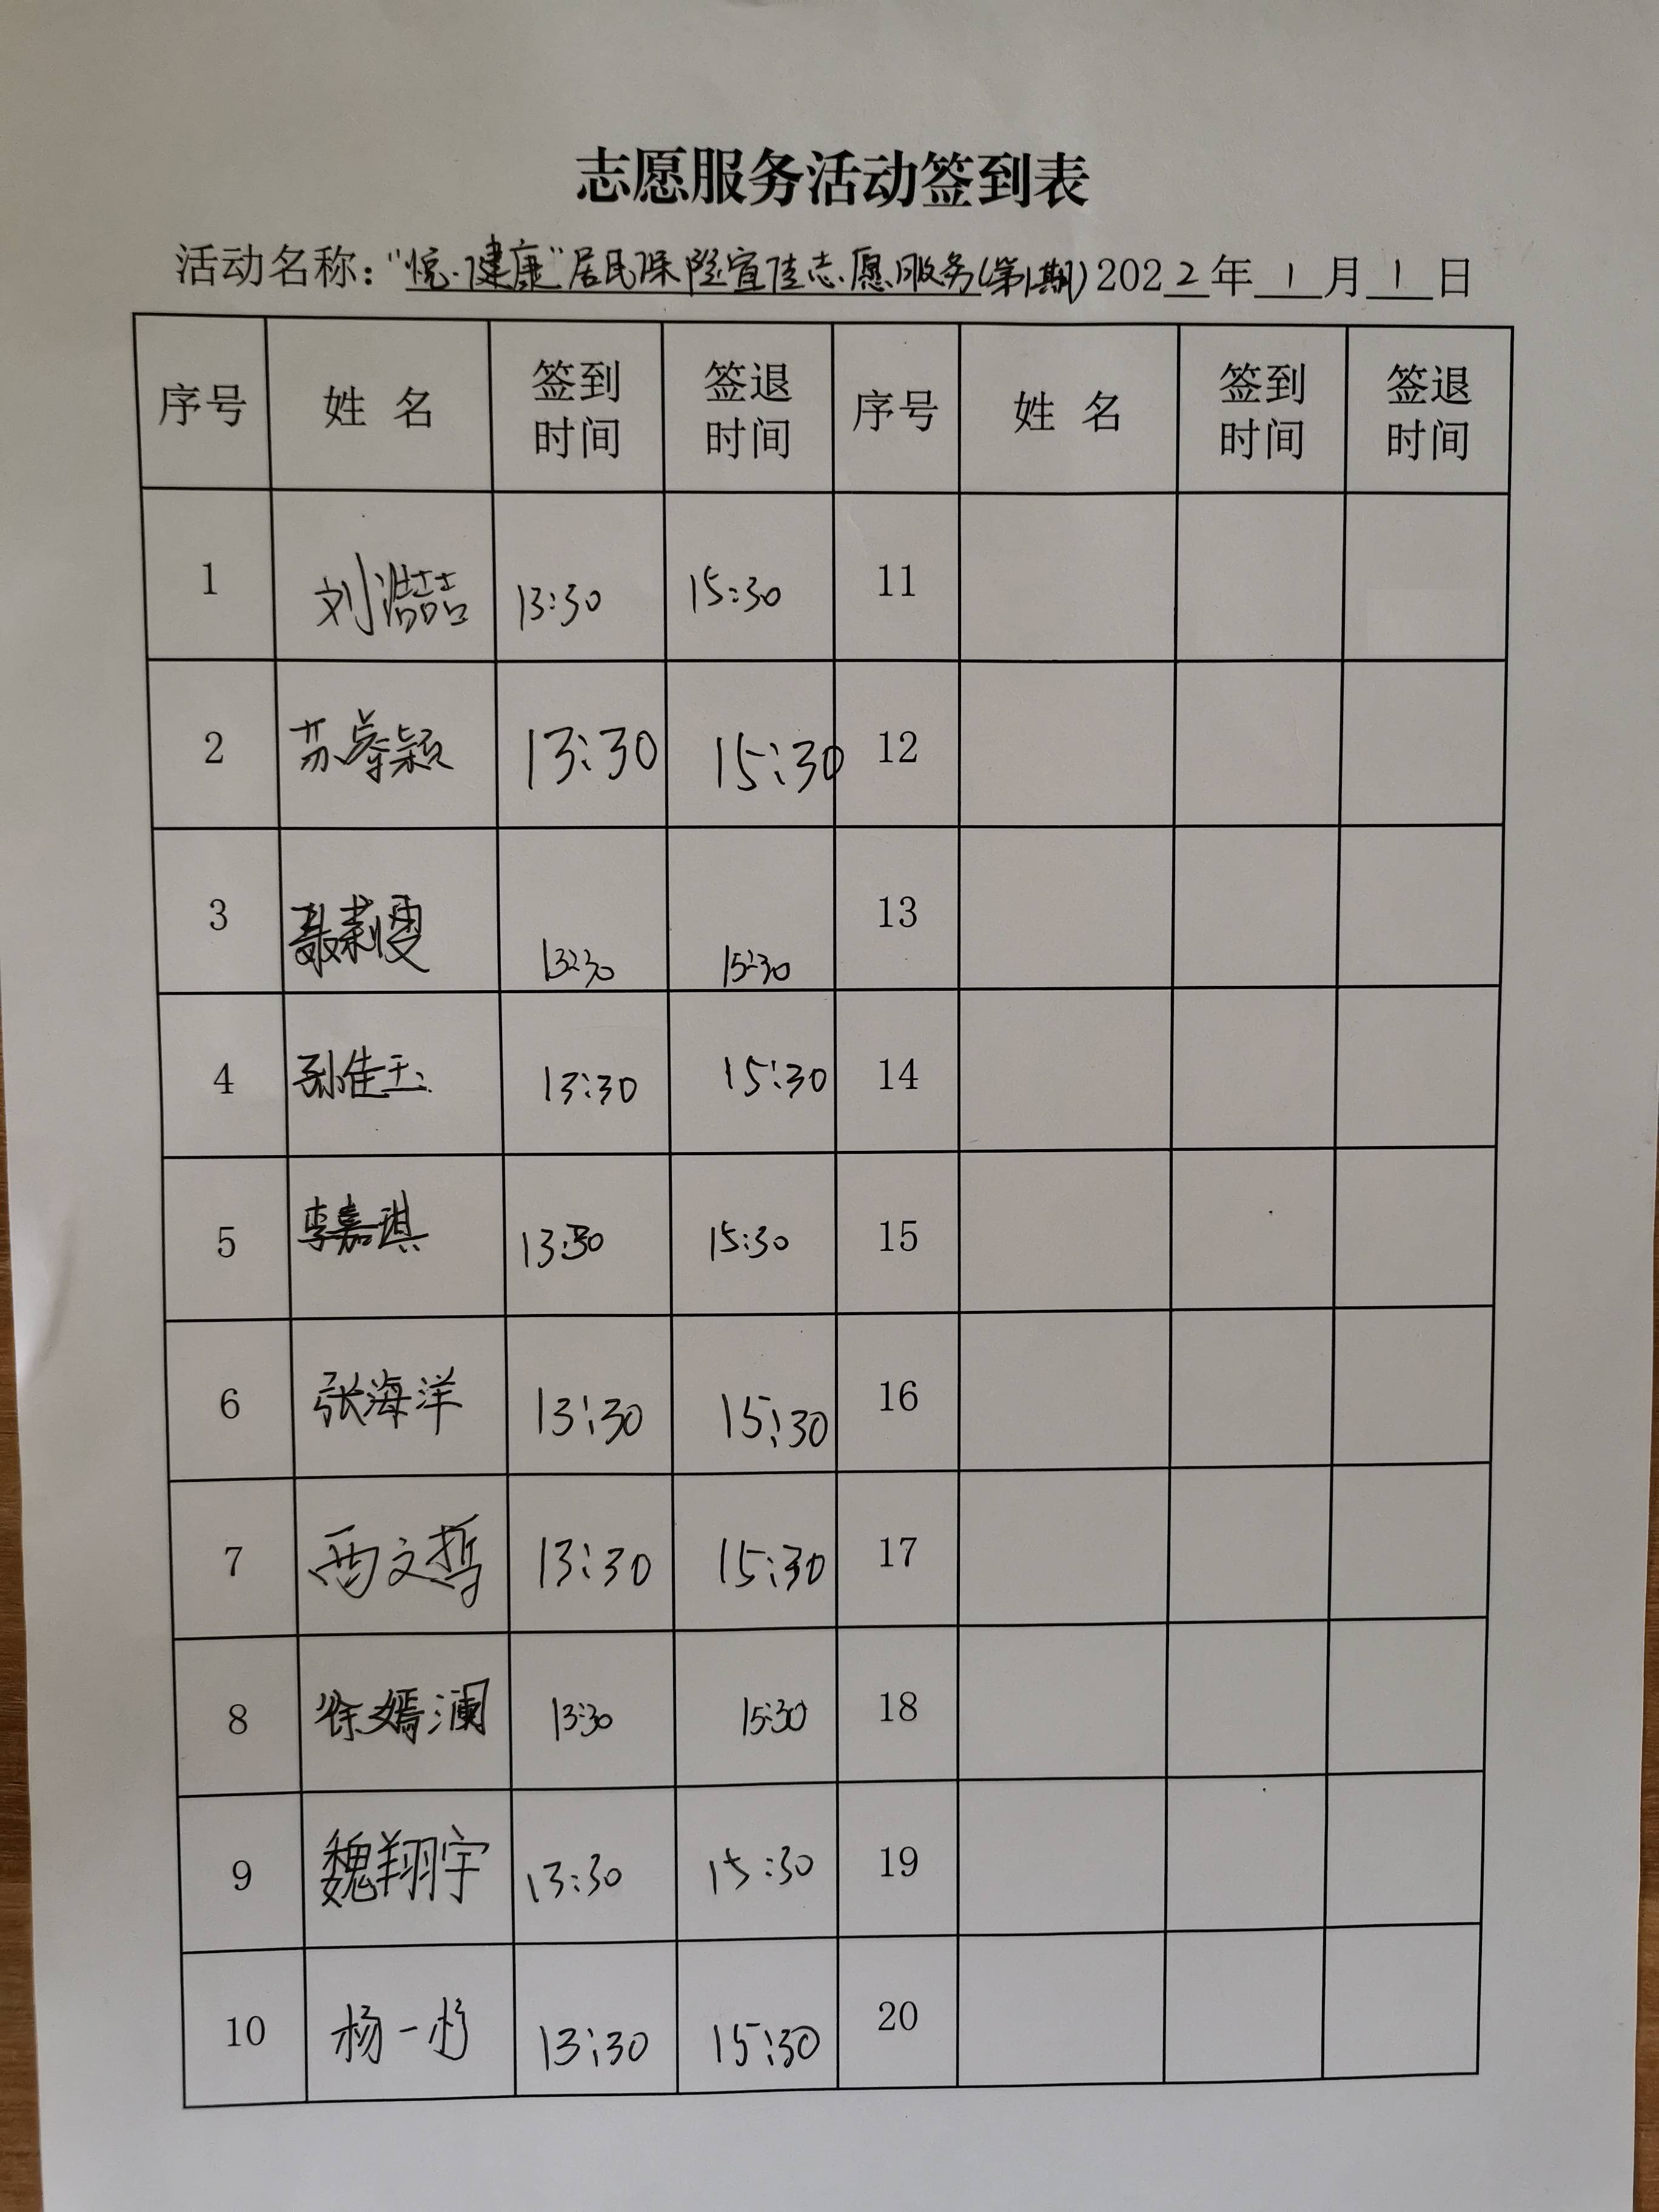 志愿服务活动签到表
活动名称："悦·健康"居民保险宣传志愿服务(第1期) 2022年1月1日
序号 姓名 签到时间 签退时间 序号 姓名 签到时间 签退时间
1 刘澔喆 13:30 15:30 11
2 苏 颖 13:30 15:30 12
3 聂莉雯 13:30 15:30 13
4 孙佳玉 13:30 15:30 14
5 李嘉琪 13:30 15:30 15
6 张海洋 13:30 15:30 16
7 西文哲 13:30 15:30 17
8 徐嫣澜 13:30 15:30 18
9 魏翔宇 13:30 15:30 19
10 杨一杉 13:30 15:30 20